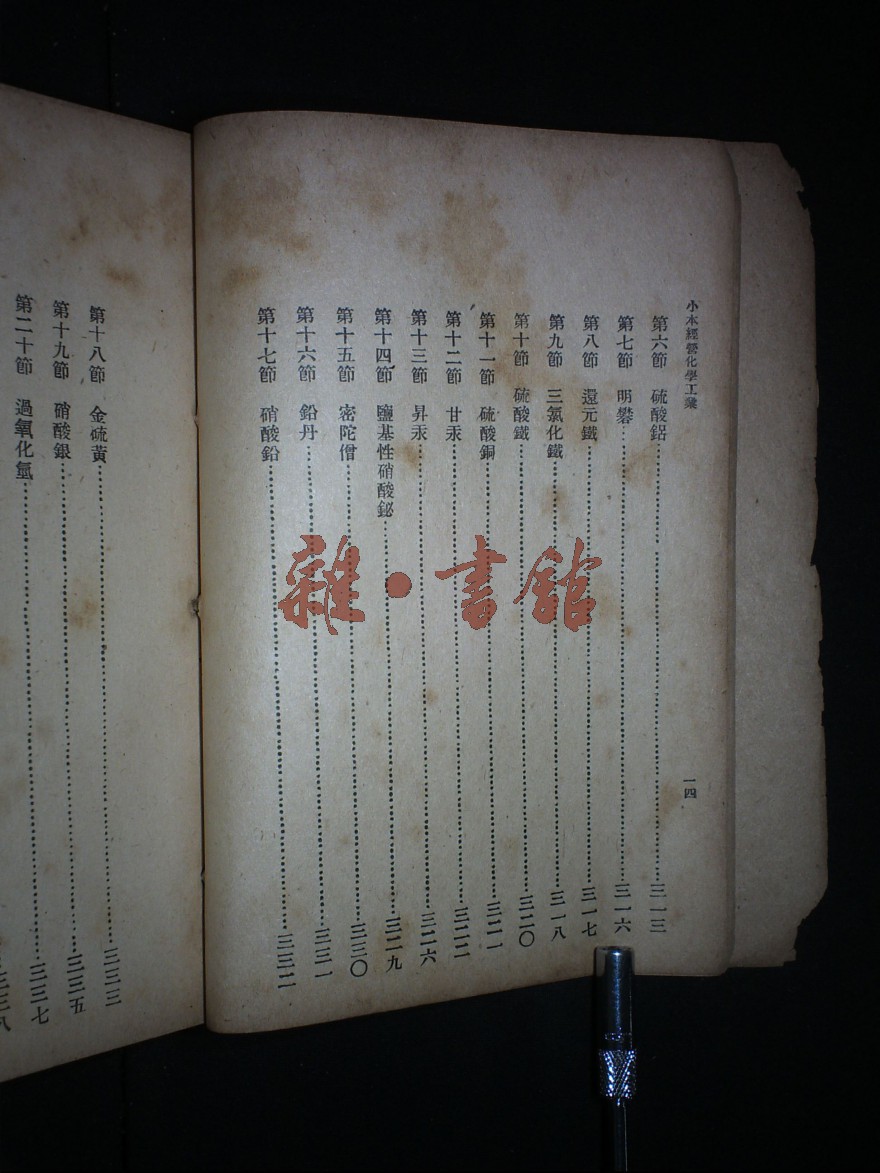 小本經營化學工業
一四
第六節 硫酸鋁……三一三
第七節 明礬……三一六
第八節 還元鐵……三一七
第九節 三氯化鐵……三一八
第十節 硫酸鐵……三二〇
第十一節 硫酸銅……三二一
第十二節 甘汞……三二二
第十三節 昇汞……三二六
第十四節 鹽基性硝酸鉍……三二九
第十五節 密陀僧……三三〇
第十六節 鉛丹……三三一
第十七節 硝酸鉛……三三二
第十八節 金硫黃……三三三
第十九節 硝酸銀……三三五
第二十節 過氧化氫……三三七
三三八
雜·書館